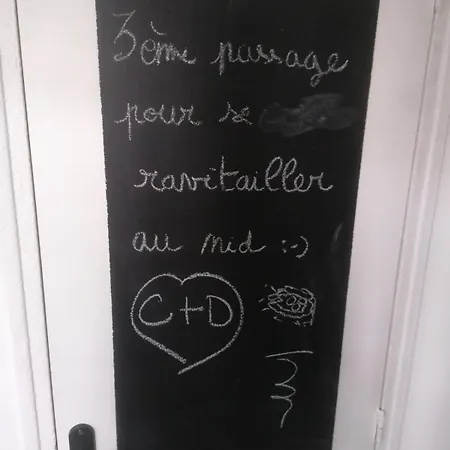 3ème passage
pour se
ravitailler
au nid :-)
C+D